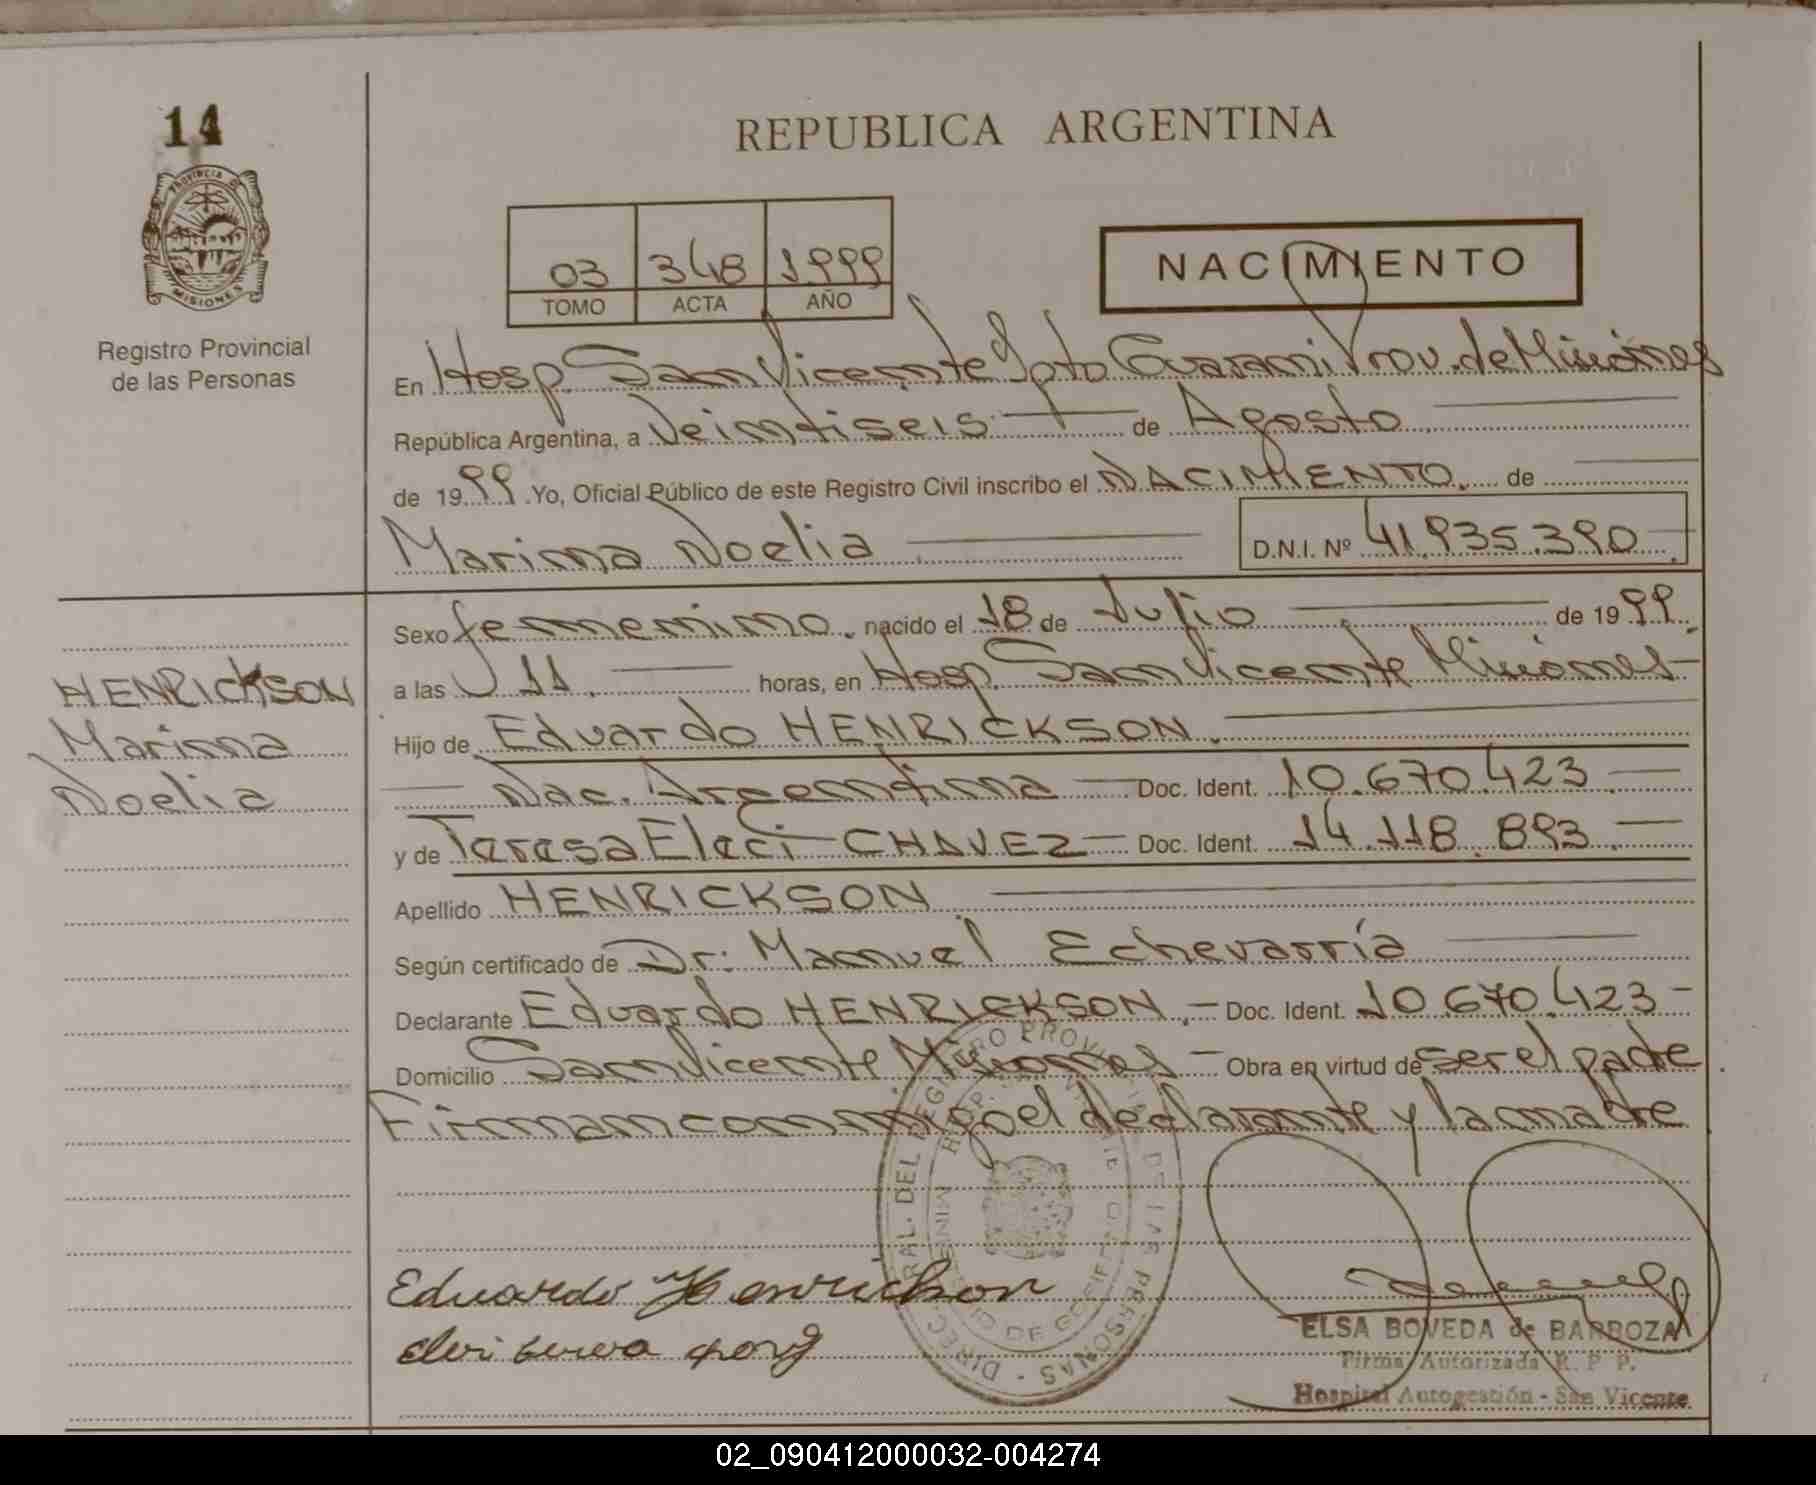 14
PROVINCIA DE
MISIONES
Registro Provincial
de las Personas
REPUBLICA ARGENTINA
03 348 1999
TOMO ACTA AÑO
NACIMIENTO
En Hosp. San Vicente Dpto Guarani Prov. de Misiones
República Argentina, a Veintiseis de Agosto
de 1999. Yo, Oficial Público de este Registro Civil inscribo el NACIMIENTO. de
Marina Noelia D.N.I. Nº 41.935.390
Sexo femenino. nacido el 18 de Julio de 1999.
a las 11. horas, en Hosp. San Vicente Misiones
HENRICKSON
Marina
Noelia
Hijo de Eduardo HENRICKSON.
Nac. Argentina Doc. Ident. 10.670.423
y de Teresa Eleci CHAVEZ Doc. Ident. 14.118.893.
Apellido HENRICKSON
Según certificado de Dr. Manuel Echevarría
Declarante Eduardo HENRICKSON. Doc. Ident. 10.670.423
Domicilio San Vicente Misiones Obra en virtud de ser el padre
Firman conmigo el declarante y la madre
DIREC RAL. DEL REGISTRO PROVINCIAL DE LAS PERSONAS
DE GOBIERNO
Eduardo Henrickson
ELSA BOVEDA de BARROZA
Firma Autorizada R. P. P.
Hospital Autogestión - San Vicente
02_090412000032-004274